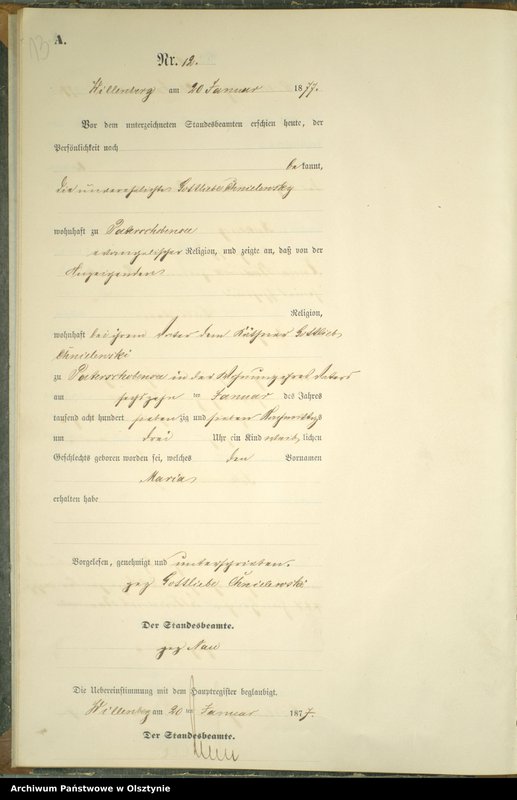 13
A.
Nr. 12.
Willenberg am 20 Januar 1877.
Vor dem unterzeichneten Standesbeamten erschien heute, der
Persönlichkeit nach
bekannt,
die unverehelichte Gottliebe Chmielewsky
wohnhaft zu Paterschobensee
evangelischer Religion, und zeigte an, daß von der
Anzeigenden
Religion,
wohnhaft bei ihrem Vater dem Käthner Gottlieb
Chmielewski
zu Paterschobensee in der Wohnung ihres Vaters
am sechszehn ten Januar des Jahres
tausend acht hundert siebenzig und sieben Nachmittags
um drei Uhr ein Kind weiblichen
Geschlechts geboren worden sei, welches den Vornamen
Maria
erhalten habe
Vorgelesen, genehmigt und unterschrieben.
gez Gottliebe Chmielewski
Der Standesbeamte.
gez Nau
Die Uebereinstimmung mit dem Hauptregister beglaubigt.
Willenberg am 20 ten Januar 1877.
Der Standesbeamte.
Archiwum Państwowe w Olsztynie